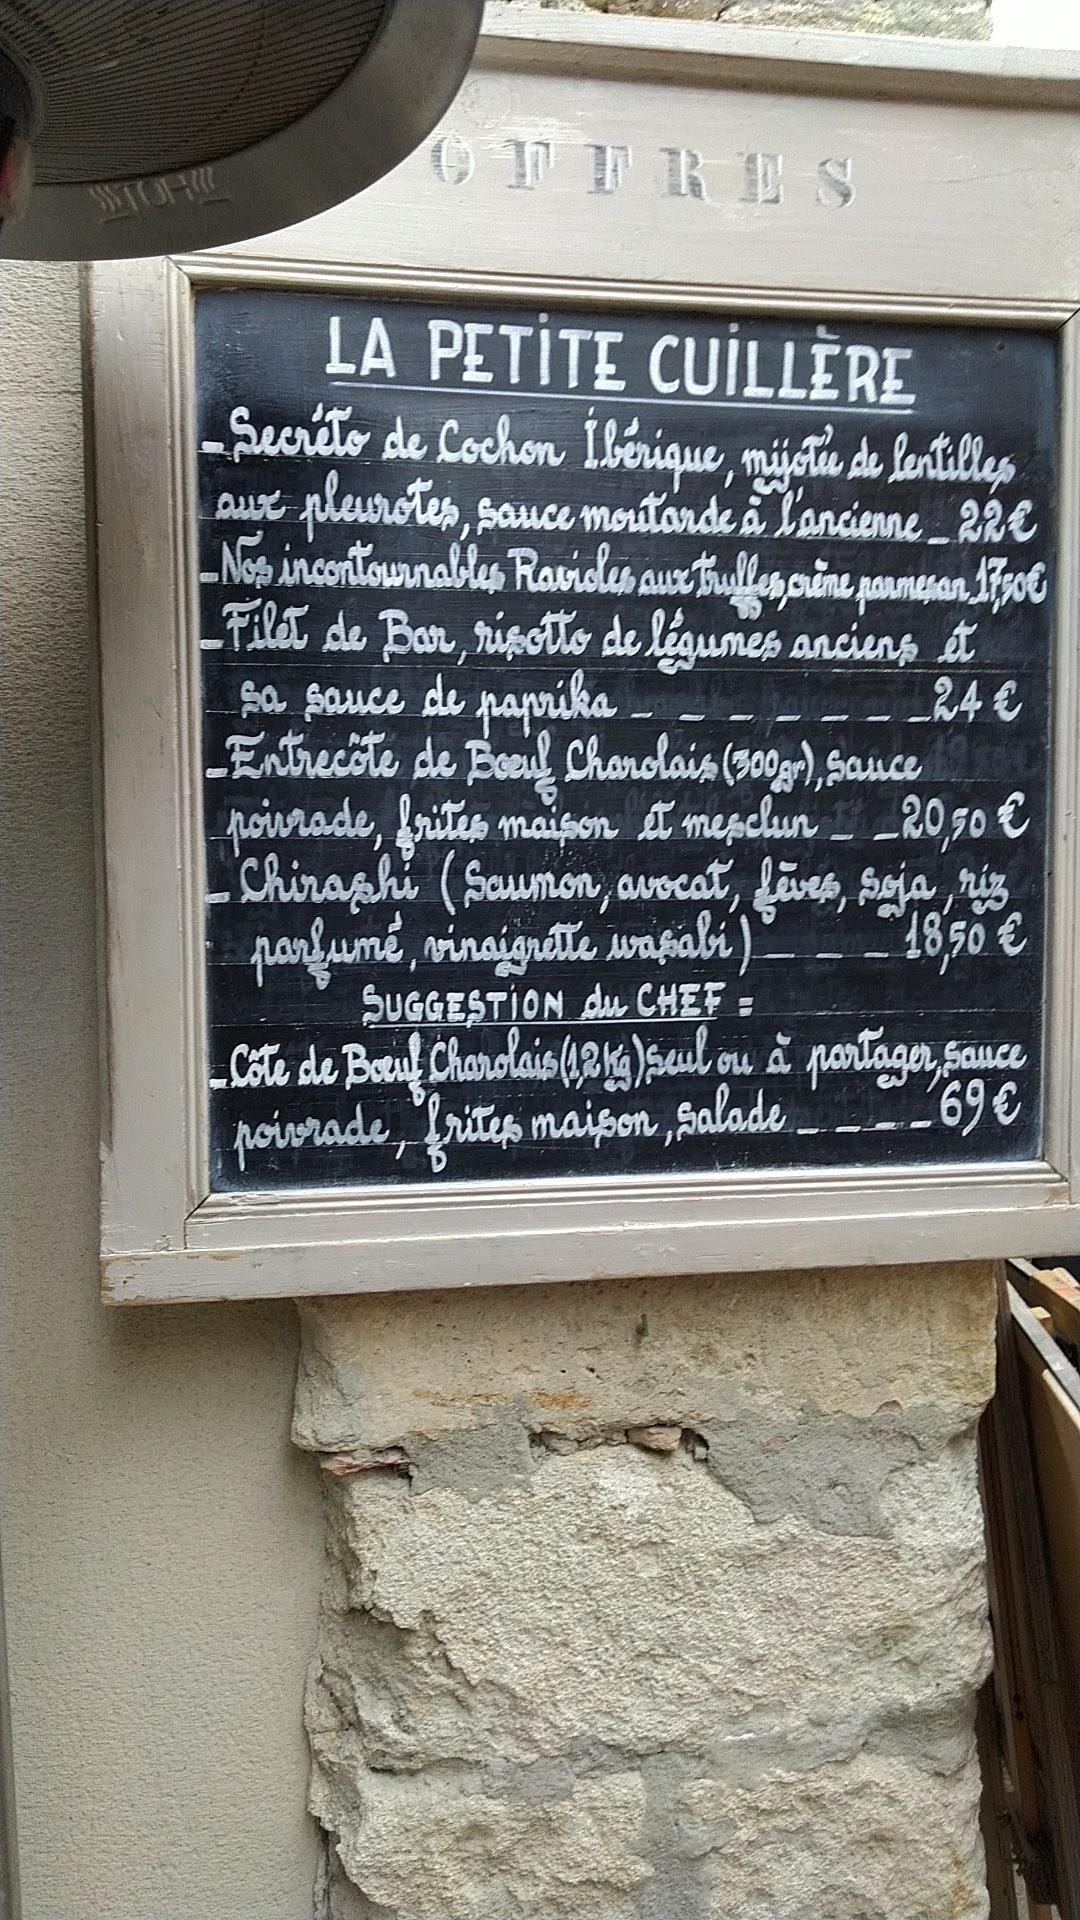 OFFRES
LA PETITE CUILLÈRE
_ Secréto de Cochon Ibérique, mijoté de lentilles
aux pleurotes, sauce moutarde à l'ancienne _ 22€
_ Nos incontournables Ravioles aux truffes, crème parmesan_17,50€
_ Filet de Bar, risotto de légumes anciens et
sa sauce de paprika _ _ _ _ _ _ _ 24 €
_ Entrecôte de Bœuf Charolais (300gr), sauce
poivrade, frites maison et mesclun _ _ 20,50 €
_ Chirashi (Saumon, avocat, fèves, soja, riz
parfumé, vinaigrette wasabi) _ _ _ 18,50 €
SUGGESTION du CHEF =
_ Côte de Bœuf Charolais (1,2kg) seul ou à partager, sauce
poivrade, frites maison, salade _ _ _ _ 69 €